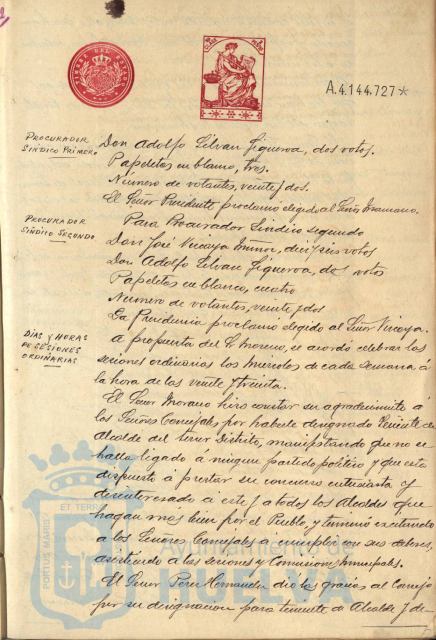 A.4.144.727*
PROCURADOR
SÍNDICO PRIMERO
Don Adolfo Silvan Figueroa, dos votos.
Papeletas en blanco, tres.
Número de votantes, veinte y dos.
El Señor Presidente proclamó elegido al Señor
PROCURADOR
SÍNDICO SEGUNDO
Para Procurador Síndico segundo
Don José Vizcaya Muñoz, diez y seis votos
Don Adolfo Silvan Figueroa, dos votos
Papeletas en blanco, cuatro
Número de votantes, veinte y dos
La Presidencia proclamó elegido al Señor Vizcaya.
DÍAS Y HORAS
DE SESIONES
ORDINARIAS
A propuesta del Sr Moreno, se acordó celebrar las
sesiones ordinarias los Miercoles de cada semana á
la hora de las veinte y treinta.
El Señor Morano hizo constar su agradecimiento á
los Señores Concejales por haberle designado Teniente de
Alcalde del tercer Distrito, manifestando que no se
halla ligado á ningun partido politico y que está
dispuesto á prestar su concurso entusiasta y
desinteresado á este y a todos los Alcaldes que
hagan más bien por el Pueblo, y terminó excitando
a los Señores Concejales á cumplir con sus deberes,
asistiendo a las sesiones y Comisiones Municipales.
El Señor Perez Hernandez dió las gracias al Concejo
por su designacion para teniente de Alcalde y de-
PORTUS MARIS ET TERRAE
Ayuntamiento de
HUELVA